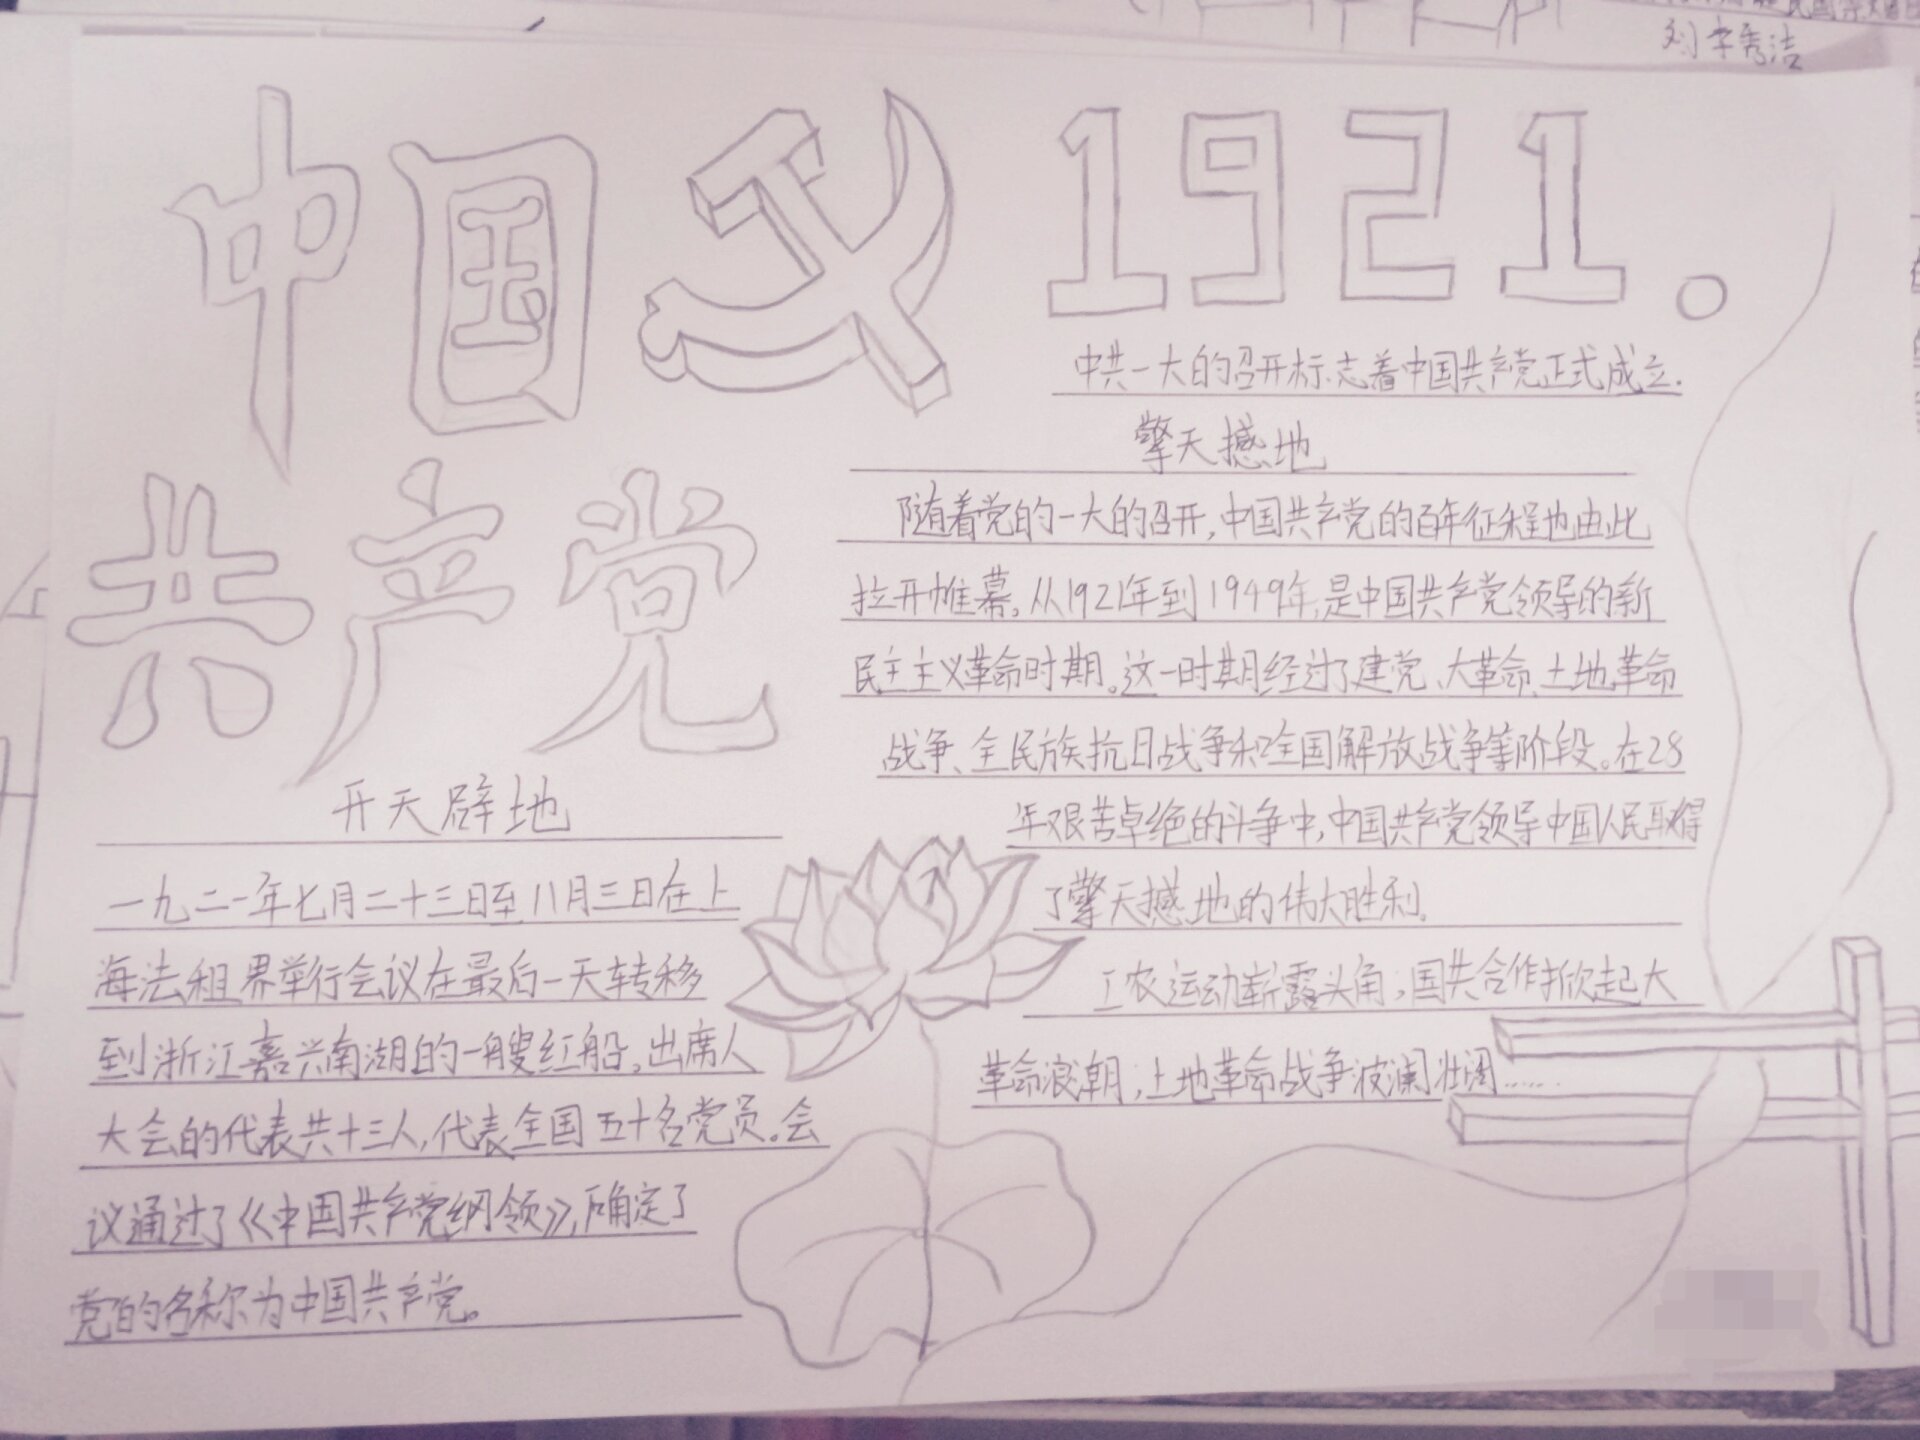 刘宇秀洁
中国
1921。
共产党
中共一大的召开标志着中国共产党正式成立.
擎天撼地
随着党的一大的召开,中国共产党的百年征程也由此
拉开帷幕。从1921年到1949年,是中国共产党领导的新
民主主义革命时期。这一时期经过了建党、大革命、土地革命
战争、全民族抗日战争和全国解放战争等阶段。在28
年艰苦卓绝的斗争中,中国共产党领导中国人民取得
了擎天撼地的伟大胜利。
工农运动崭露头角;国共合作掀起大
革命浪潮;土地革命战争波澜壮阔……
开天辟地
一九二一年七月二十三日至八月三日在上
海法租界举行会议在最后一天转移
到浙江嘉兴南湖的一艘红船。出席人
大会的代表共十三人,代表全国五十名党员。会
议通过了《中国共产党纲领》,确定了
党的名称为中国共产党。